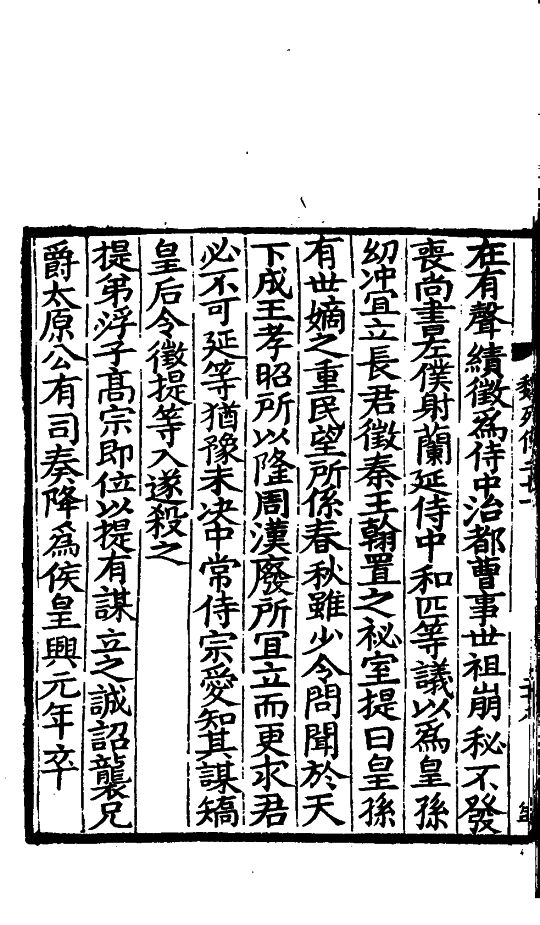 在有聲績徵為侍中治都曹事世祖崩秘不發
喪尚書左僕射蘭延侍中和匹等議以為皇孫
幼冲宜立長君徵秦王翰置之祕室提曰皇孫
有世嫡之重民望所係春秋雖少令問聞於天
下成王孝昭所以隆周漢廢所宜立而更求君
必不可延等猶豫未决中常侍宗愛知其謀矯
皇后令徵提等入遂殺之
提弟浮子髙宗即位以提有謀立之誠詔襲兄
爵太原公有司奏降為侯皇興元年卒